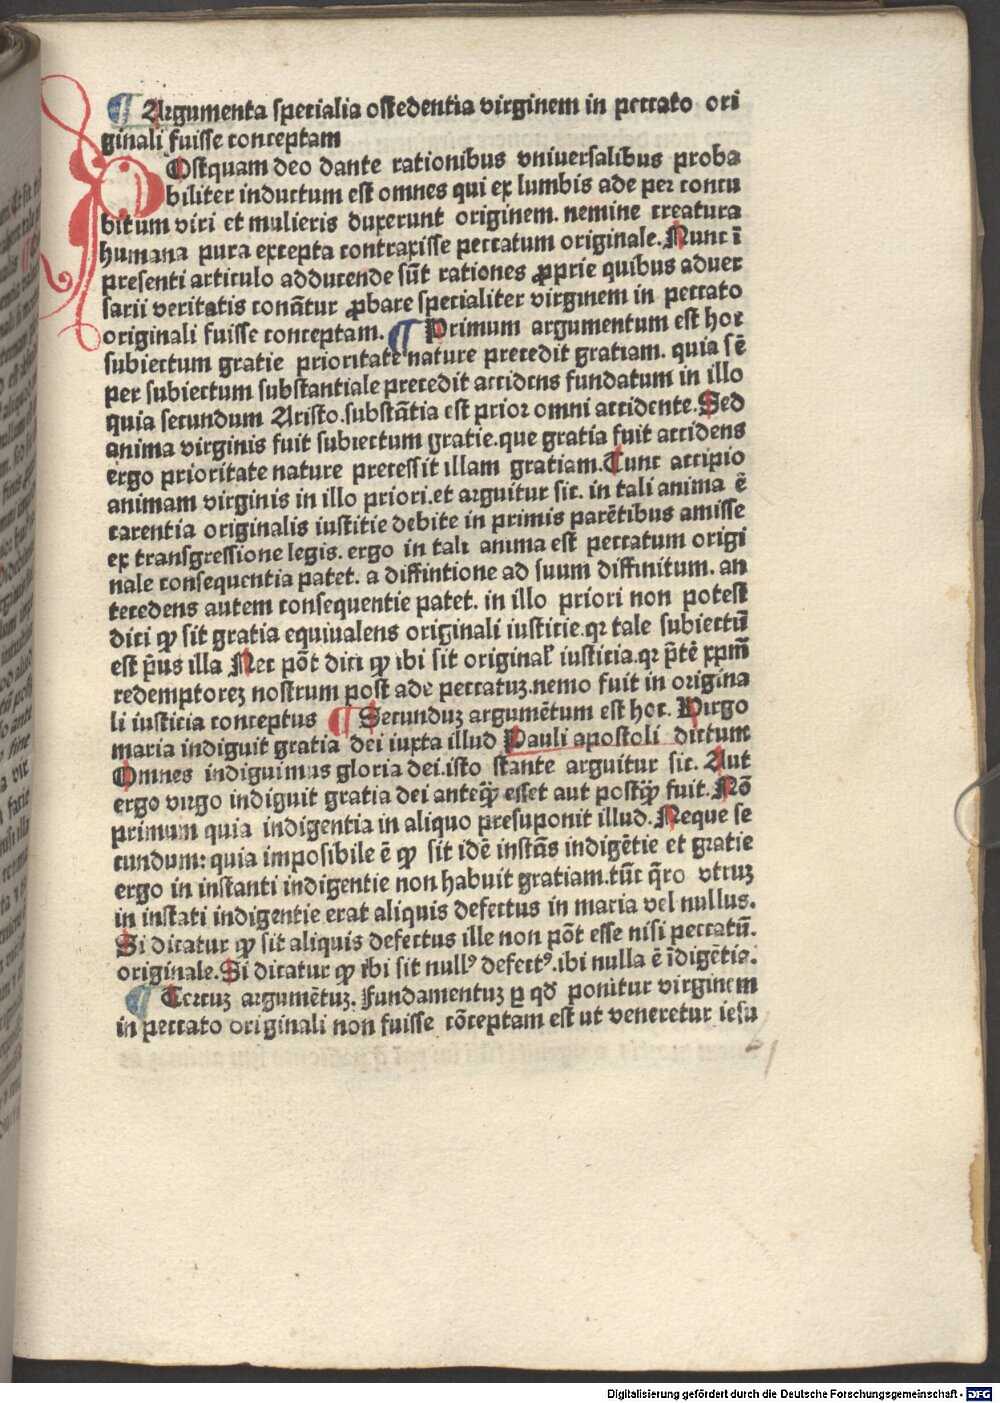 ¶ Argumenta specialia ostẽdentia virginem in peccato ori
ginali fuisse conceptam
POstquam deo dante rationibus vniuersalibus proba
biliter inductum est omnes qui ex lumbis ade per concu
bitum viri et mulieris duxerunt originem. nemine creatura
humana pura excepta contraxisse peccatum originale. Nunc ĩ
presenti articulo adducende sũt rationes ꝓprie quibus aduer
sarii veritatis conãtur ꝓbare specialiter virginem in peccato
originali fuisse conceptam. ¶ Primum argumentum est hoc
subiectum gratie prioritate nature precedit gratiam. quia sẽ
per subiectum substantiale precedit accidens fundatum in illo
quia secundum Aristo. substãtia est prior omni accidente. Sed
anima virginis fuit subiectum gratie. que gratia fuit accidens
ergo prioritate nature precessit illam gratiam. Tunc accipio
animam virginis in illo priori. et arguitur sic. in tali anima ẽ
carentia originalis iustitie debite in primis parẽtibus amisse
ex transgressione legis. ergo in tali anima est peccatum origi
nale consequentia patet. a diffintione ad suum diffinitum. an
tecedens autem consequentie patet. in illo priori non potest
dici ꝙ sit gratia equiualens originali iusticie. qꝛ tale subiectũ
est p̃us illa Nec põt dici ꝙ ibi sit original' iusticia. qꝛ p̃tẽ xp̃m
redemptorez nostrum post ade peccatuz. nemo fuit in origina
li iusticia conceptus ¶ Secunduz argumẽtum est hoc. Virgo
maria indiguit gratia dei iuxta illud Pauli apostoli dictum
Omnes indiguimus gloria dei. isto stante arguitur sic. Aut
ergo virgo indiguit gratia dei anteq̃ꝫ esset aut postq̃ꝫ fuit. Nõ
primum quia indigentia in aliquo presuponit illud. Neque se
cundum: quia imposibile ẽ ꝙ sit idẽ instãs indigẽtie et gratie
ergo in instanti indigentie non habuit gratiam. tũc q̃ro vtruz
in instãti indigentie erat aliquis defectus in maria vel nullus.
Si dicatur ꝙ sit aliquis defectus ille non põt esse nisi peccatũ.
originale. Si dicatur ꝙ ibi sit nullꝰ defectꝰ. ibi nulla ẽ ĩdigẽtia.
¶ Terciuz argumẽtuz. Fundamentuz ꝑ qd̃ ponitur virginem
in peccato originali non fuisse cõceptam est ut veneretur iesu
Digitalisierung gefördert durch die Deutsche Forschungsgemeinschaft - DFG